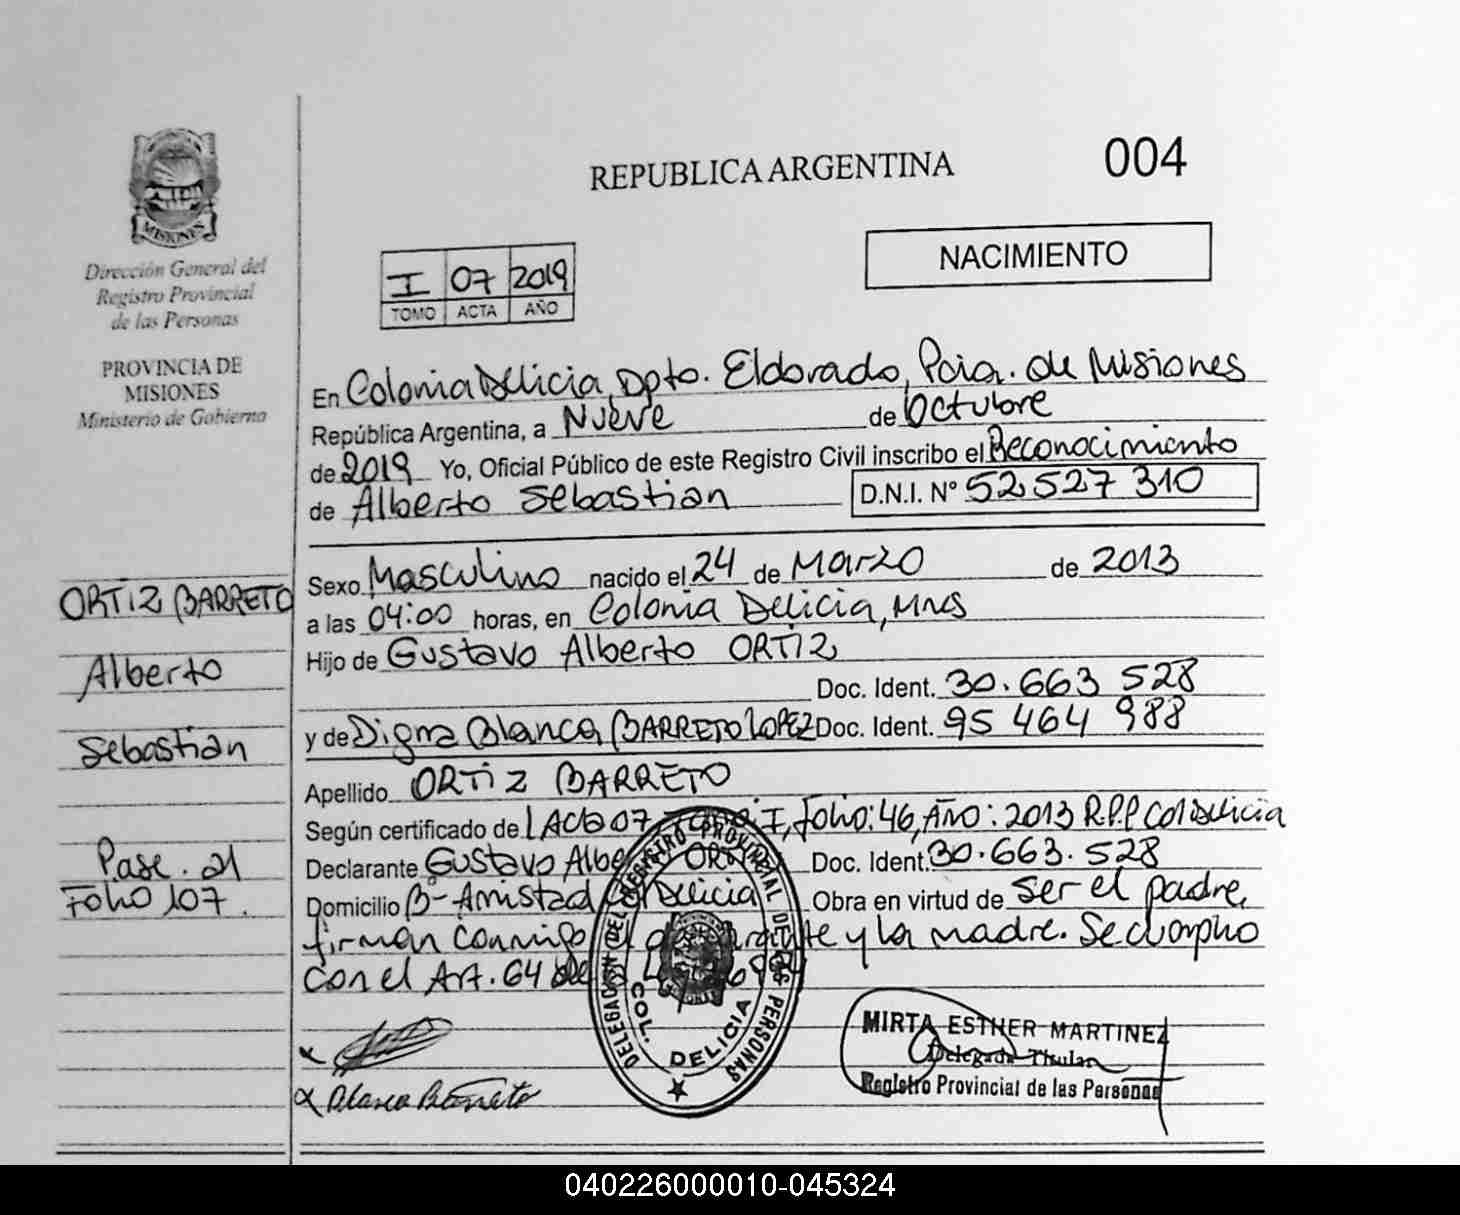 REPUBLICA ARGENTINA
004
MISIONES
Dirección General del
Registro Provincial
de las Personas
PROVINCIA DE
MISIONES
Ministerio de Gobierno
NACIMIENTO
I 07 2019
TOMO ACTA AÑO
En Colonia Delicia, Dpto. Eldorado, Pcia. de Misiones
República Argentina, a Nueve de Octubre
de 2019 Yo, Oficial Público de este Registro Civil inscribo el Reconocimiento
de Alberto Sebastian D.N.I. N° 52 527 310
Sexo Masculino nacido el 24 de Marzo de 2013
a las 04:00 horas, en Colonia Delicia, Mnes
Hijo de Gustavo Alberto ORTIZ
Doc. Ident. 30.663 528
y de Digna Blanca BARRETO LOPEZ Doc. Ident. 95 464 988
Apellido ORTIZ BARRETO
Según certificado de Acta 07 I, Folio: 46, Año: 2013 R.P.P Col Delicia
Declarante Gustavo ORTIZ Doc. Ident. 30.663.528
Domicilio Bº Amistad Col Delicia Obra en virtud de ser el padre,
firman conmigo y la madre. Se cumplio
con el Art. 64
ORTIZ BARRETO
Alberto
Sebastián
Pase. al
Folio 107.
DELEGACION DEL REGISTRO PROVINCIAL DE LAS PERSONAS
COL. DELICIA
x
x Blanca Barreto
MIRTA ESTHER MARTINEZ
Delegada Titular
Registro Provincial de las Personas
040226000010-045324